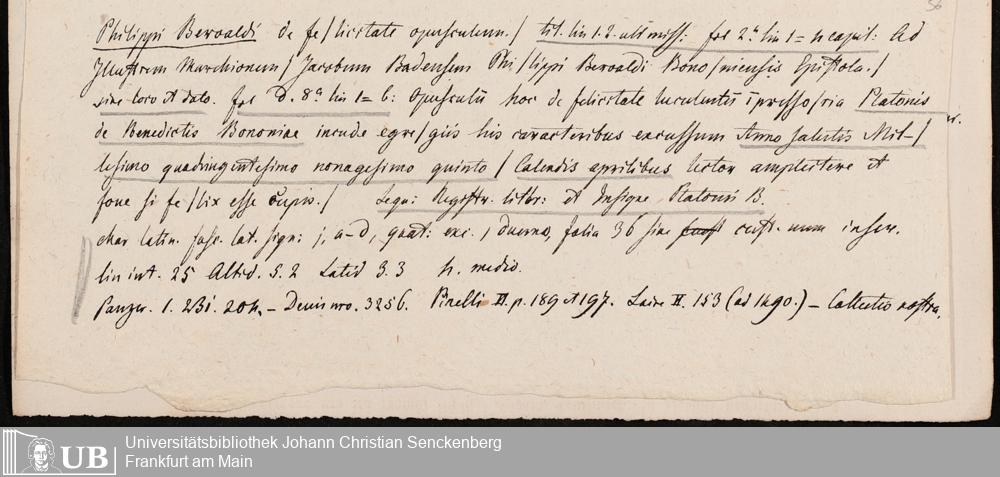 56
Philippi Beroaldi de fe/licitate opusculum./ tit. lin 1. 2. ult miss: fol 2ª lin 1= capit: Ad
Illustrem Marchionem/ Jacobum Badensem Phi/lippi Beroaldi Bono/niensis Epistola./
sine loco et dato. fol D. 8ª lin 1= b: Opusculū hoc de felicitate luculentū īpresso/ria Platonis
de Benedictis Bononiae incude egre/giis his caracteribus excussum Anno salutis Mil-/
lesimo quadringintesimo nonagesimo quinto / Calendis aprilibus lector amplectere et
fove si fe/lix esse cupis./ Sequ: Registr. littr: et Insigne Platonis B.
char latin. sign: j, a-d, quat: exc. j duerno, folia 36 sine cust. num inser.
lin int. 25 Altid. 5. 2 Latid 3. 3 h. medio.
Panzer. 1. 231. 204. – Denis nro. 3256. Pinelli II. p. 189 et 197. Laire II. 153 (ad 1490.) – Collectio nostra.
UB
Universitätsbibliothek Johann Christian Senckenberg
Frankfurt am Main